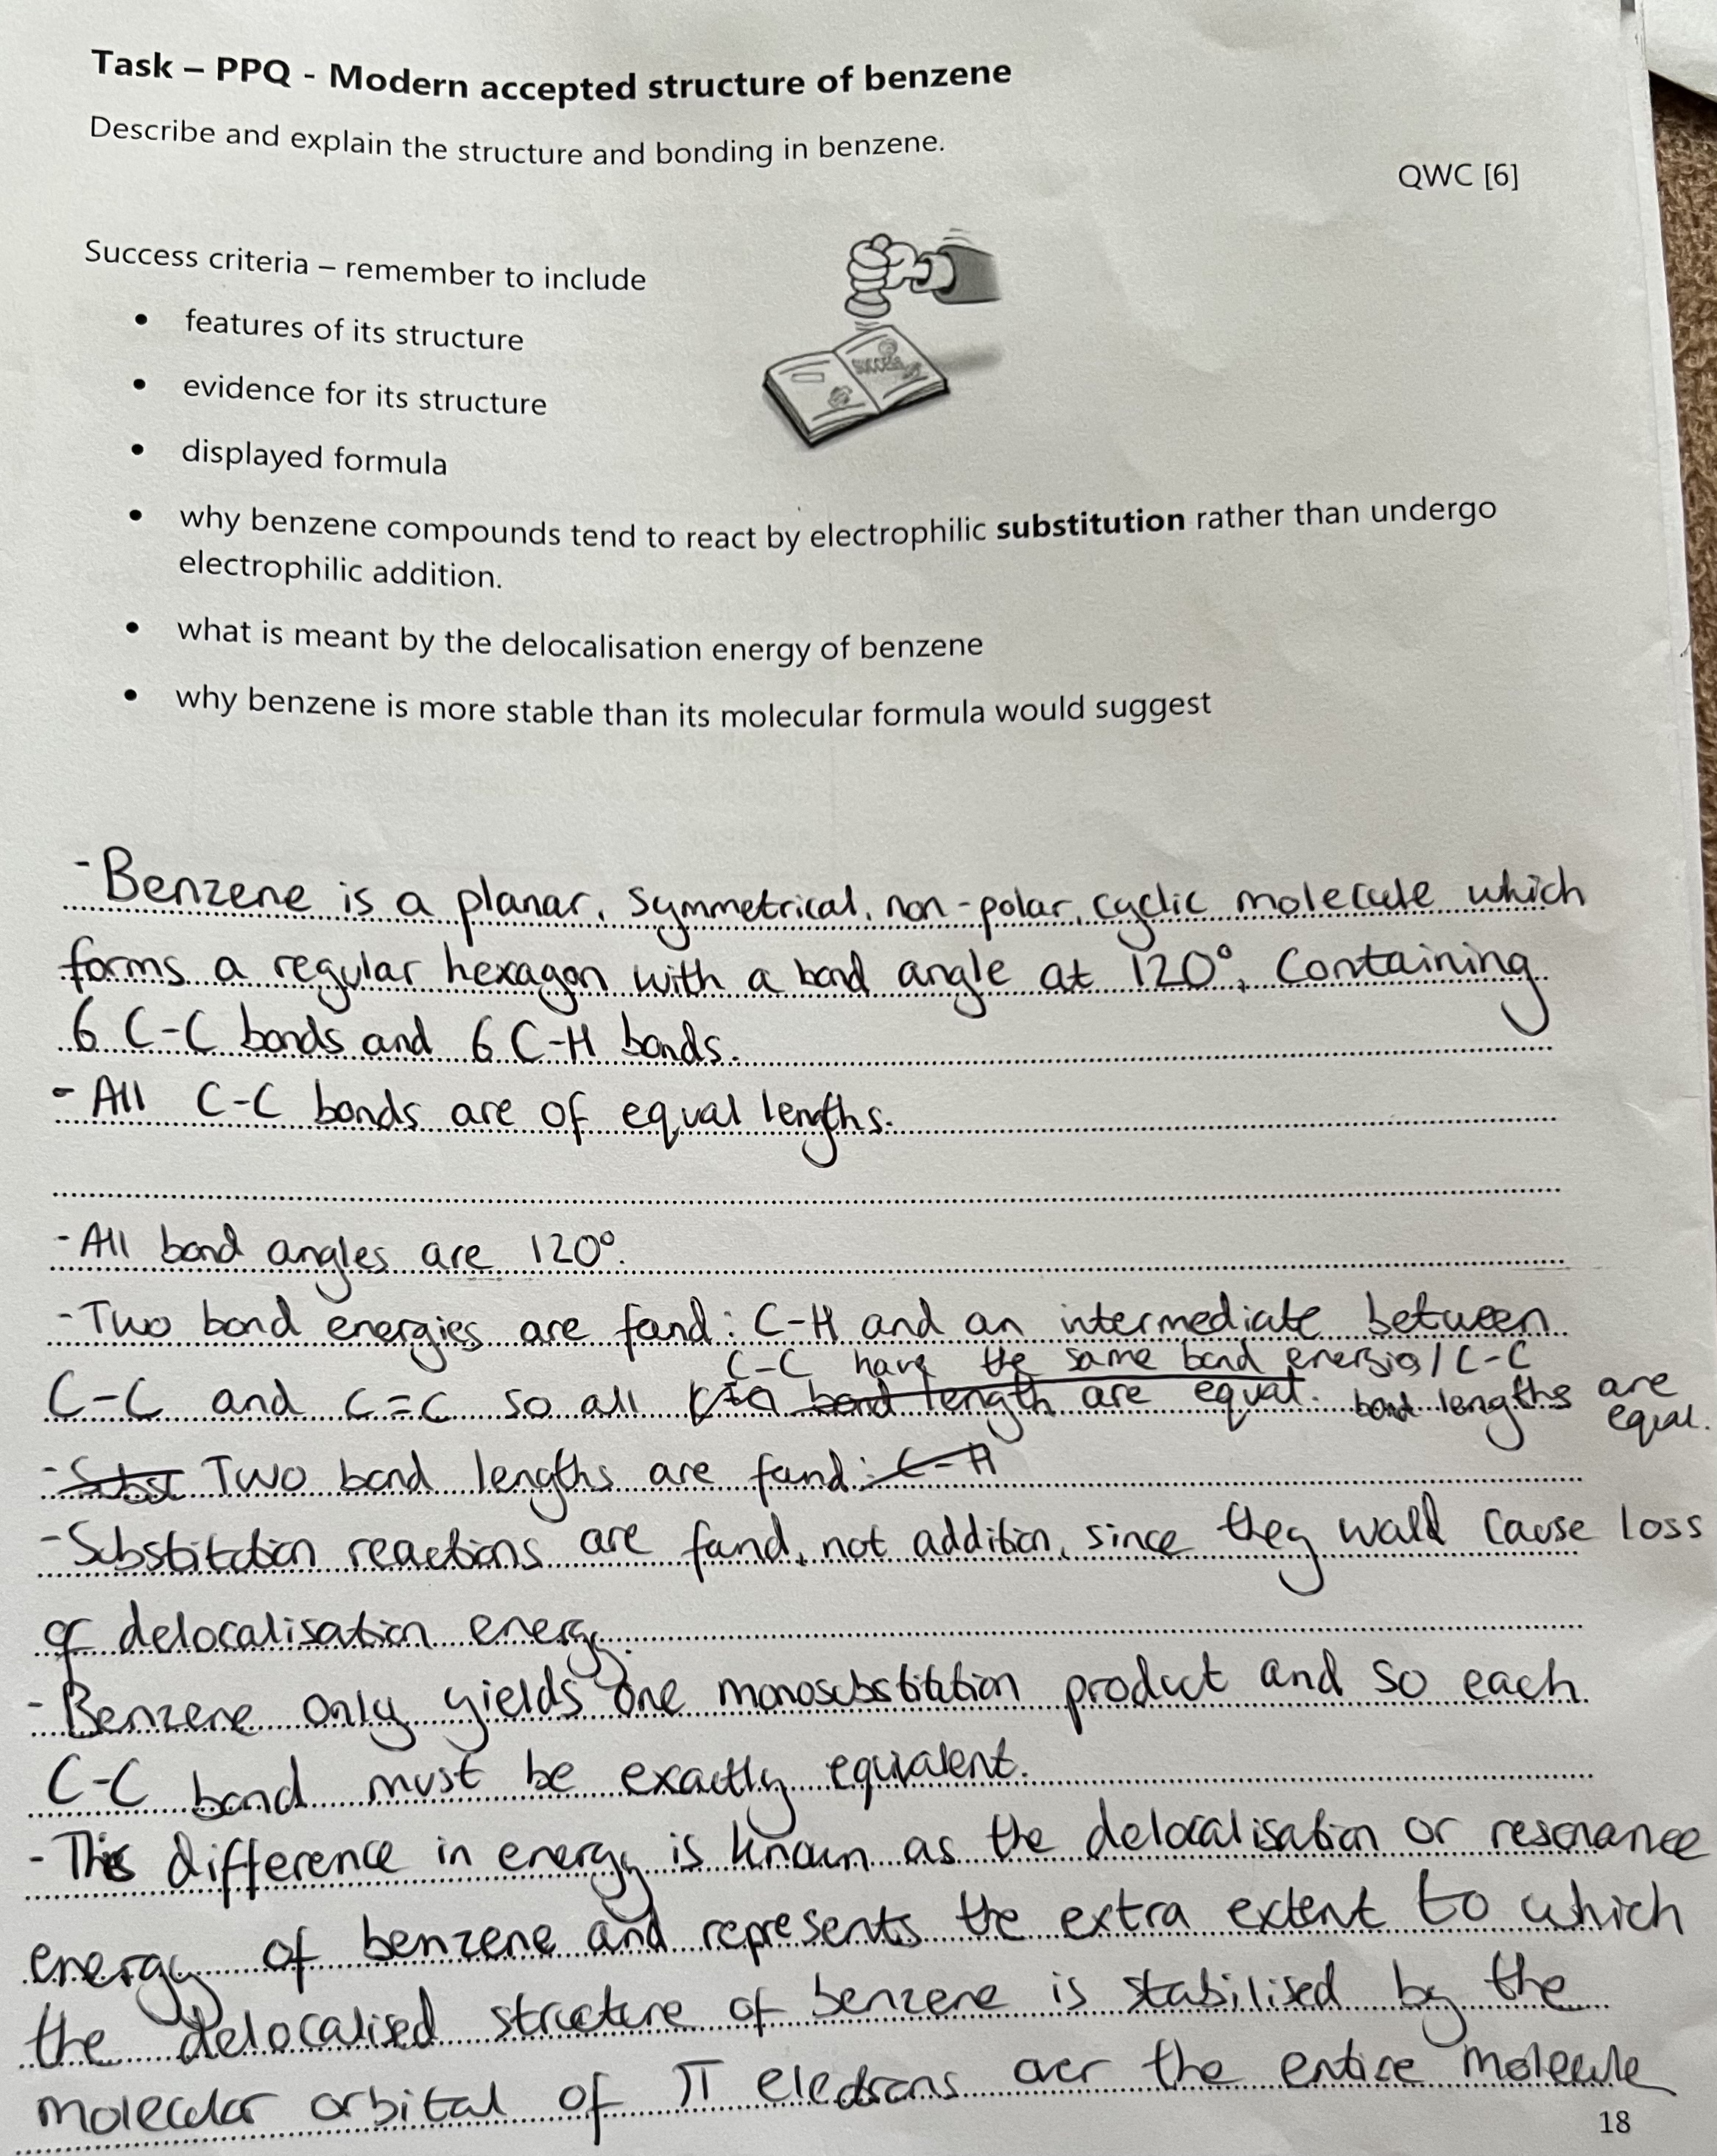 Task – PPQ - Modern accepted structure of benzene
Describe and explain the structure and bonding in benzene.
QWC [6]
Success criteria – remember to include
• features of its structure
• evidence for its structure
• displayed formula
• why benzene compounds tend to react by electrophilic substitution rather than undergo
electrophilic addition.
• what is meant by the delocalisation energy of benzene
• why benzene is more stable than its molecular formula would suggest
SUCCESS
- Benzene is a planar, symmetrical, non-polar, cyclic molecule which
forms a regular hexagon with a bond angle at 120°, containing
6 C-C bonds and 6 C-H bonds.
- All C-C bonds are of equal lengths.
- All bond angles are 120°.
- Two bond energies are found: C-H and an intermediate between
C-C have the same bond energies / C-C
C-C and C=C so all bond length are equal. bond lengths are
equal.
- Subst Two bond lengths are found: C-H
- Substitution reactions are found, not addition, since they would cause loss
of delocalisation energy.
- Benzene only yields one monosubstitution product and so each
C-C bond must be exactly equivalent.
- This difference in energy is known as the delocalisation or resonance
energy of benzene and represents the extra extent to which
the delocalised structure of benzene is stabilised by the
molecular orbital of π electrons over the entire molecule
18